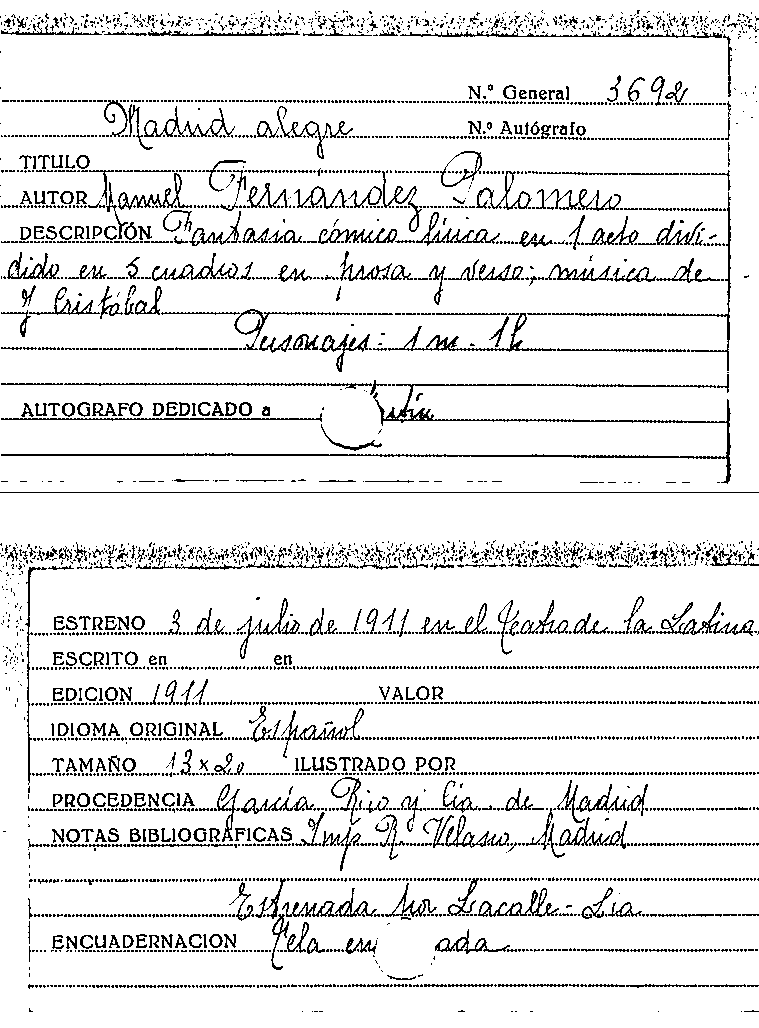 N.º General 3692
Madrid alegre N.º Autógrafo
TITULO
AUTOR Manuel Fernández Palomero
DESCRIPCIÓN Fantasia cómico lírica en 1 acto divi-
dido en 5 cuadros en prosa y verso; música de
J Cristóbal
Personajes: 1 m - 1 h
AUTOGRAFO DEDICADO a
ESTRENO 3 de julio de 1911 en el Teatro de la Latina
ESCRITO en en
EDICION 1911 VALOR
IDIOMA ORIGINAL Español
TAMAÑO 13 x 20 ILUSTRADO POR
PROCEDENCIA García Rico y Cia. de Madrid
NOTAS BIBLIOGRAFICAS Imp R. Velasco, Madrid
Estrenada por Lacalle -
ENCUADERNACION Tela en ada